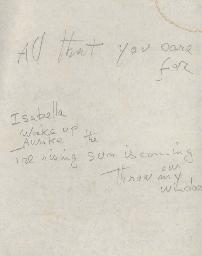 All that you care
for
Isabella
wake up
Awake the
The rising sun is coming
Throw my our
window